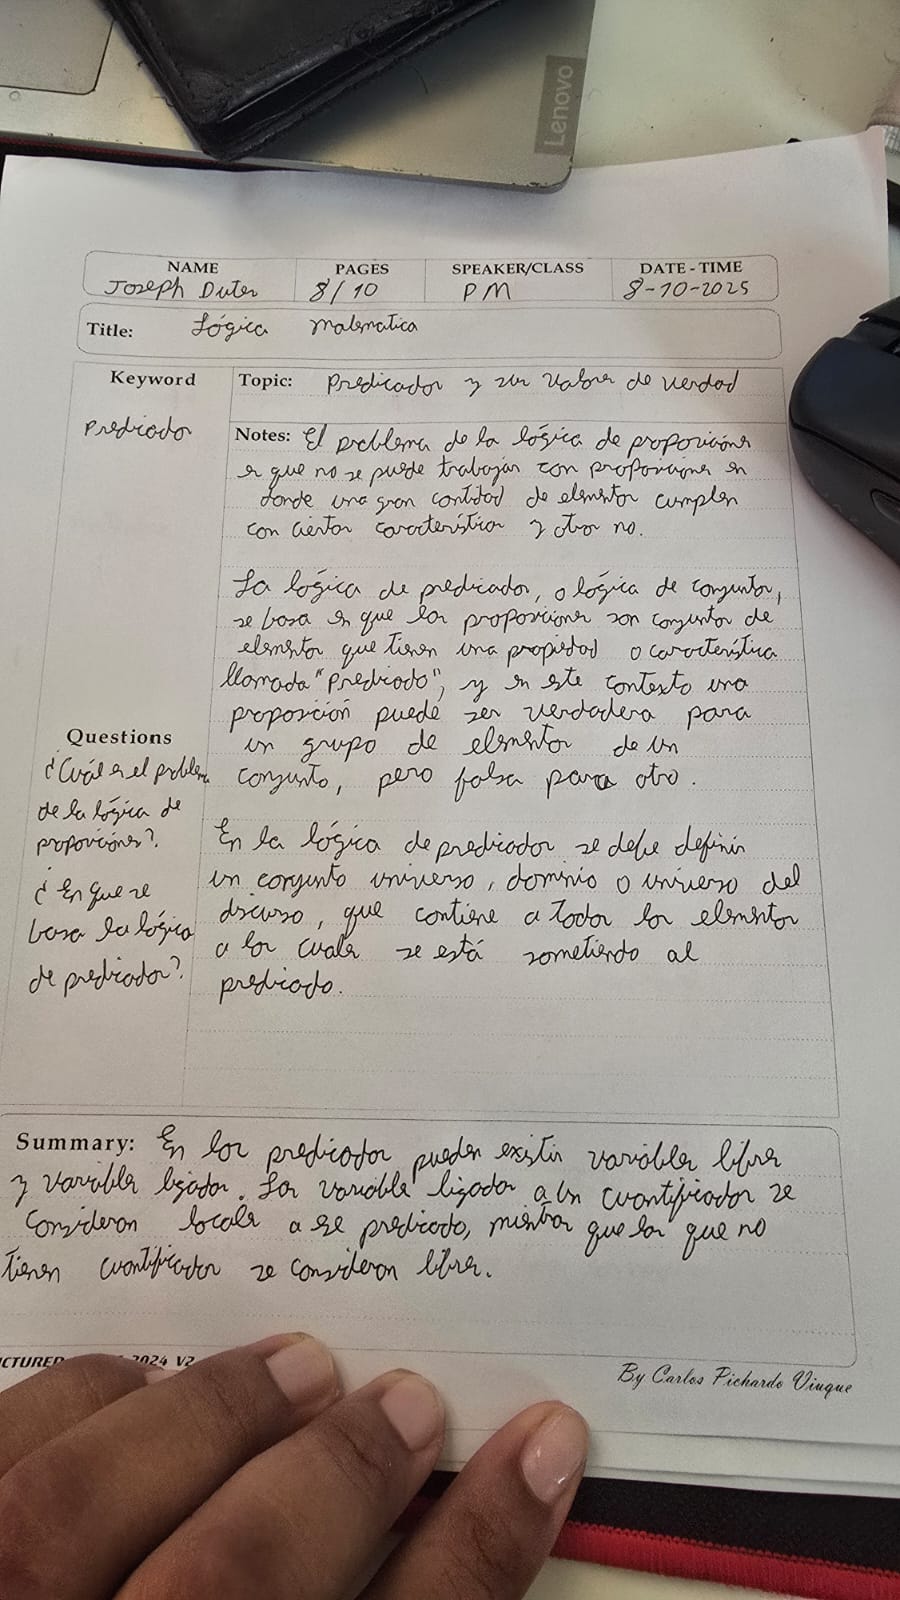 Lenovo
NAME PAGES SPEAKER/CLASS DATE - TIME
Joseph 8/10 PM 8-10-2025
Title: Lógica matematica
Keyword
Topic: Predicados y sus valores de verdad
Predicados
Notes: El problema de la lógica de proposiciones
es que no se puede trabajar con proposiciones en
donde una gran cantidad de elementos cumplen
con ciertas características y otros no.
La lógica de predicados, o lógica de conjuntos,
se basa en que las proposiciones son conjuntos de
elementos que tienen una propiedad o característica
llamada "Predicado", y en este contexto una
proposición puede ser verdadera para
un grupo de elementos de un
conjunto, pero falsa para otro.
En la lógica de predicados se debe definir
un conjunto universo, dominio o universo del
discurso, que contiene a todos los elementos
a los cuales se está sometiendo al
predicado.
Questions
¿Cuál es el problema
de la lógica de
proposiciones?
¿En que se
basa la lógica
de predicados?
Summary: En los predicados pueden existir variables libres
y variables ligadas. Las variables ligadas a un cuantificador se
consideran locales a ese predicado, mientras que las que no
tienen cuantificador se consideran libres.
2024 V2
By Carlos Pichardo Viuque